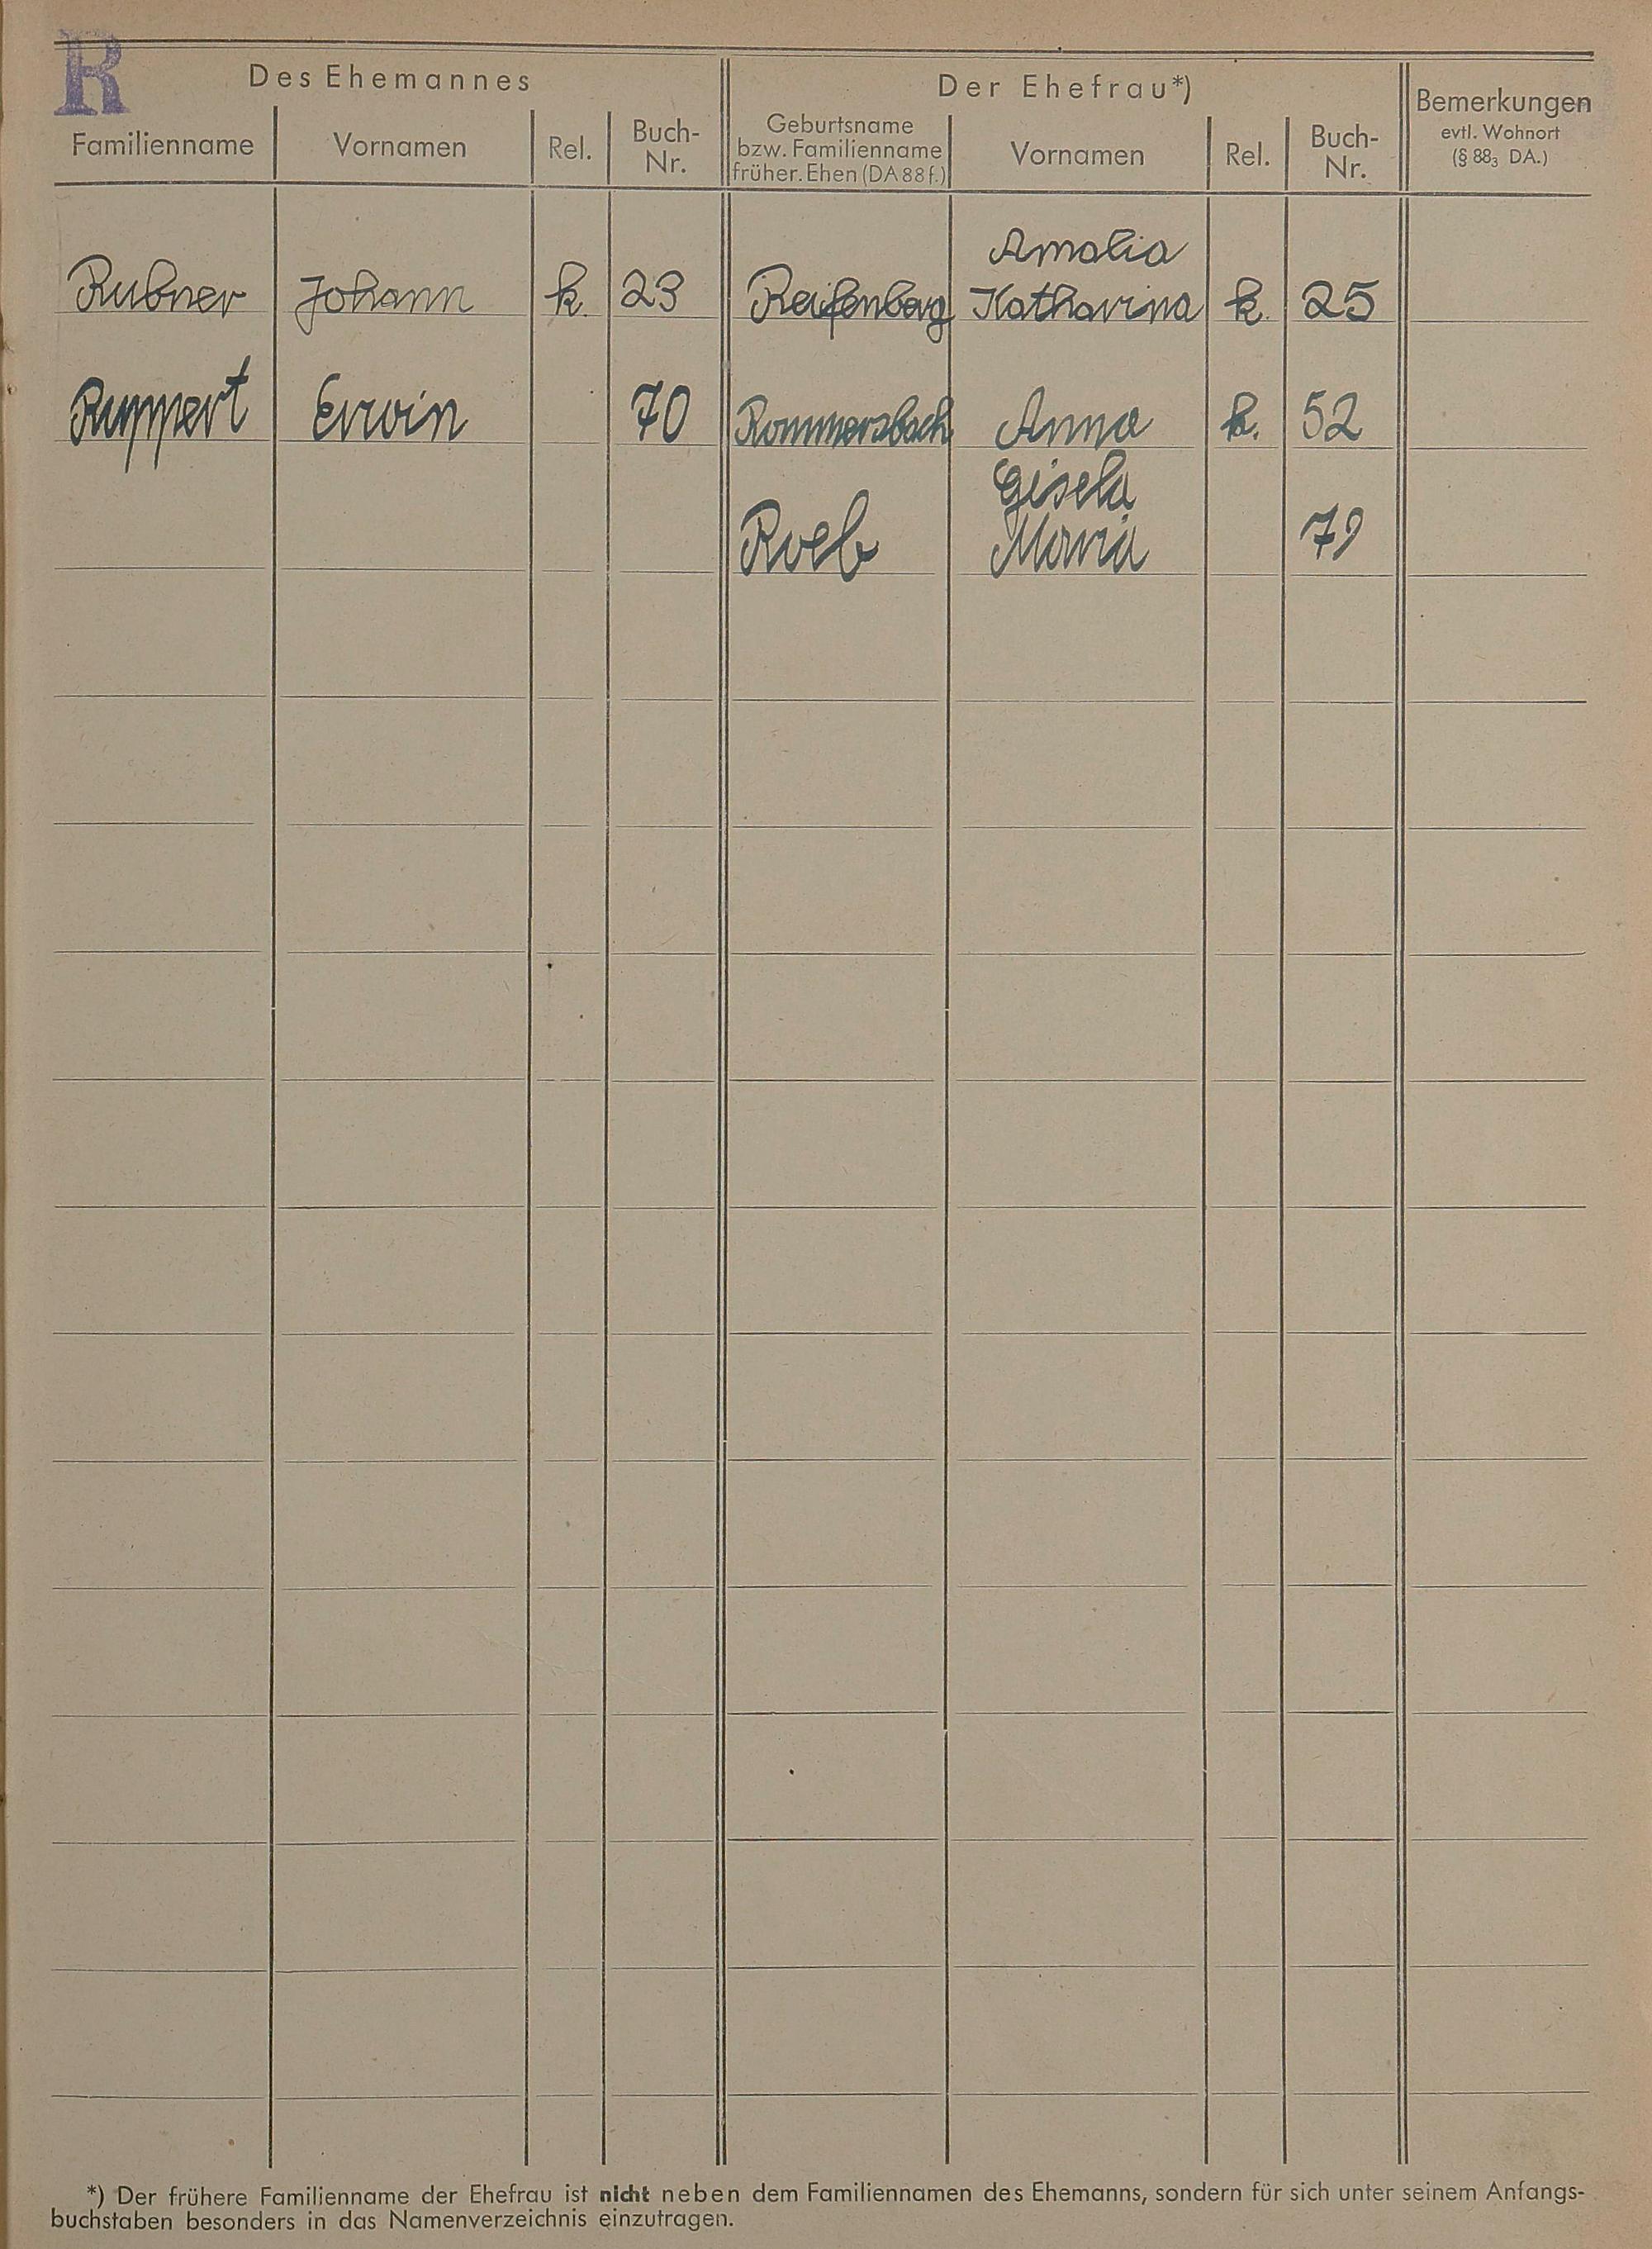 R
Des Ehemannes
Der Ehefrau*)
Bemerkungen
evtl. Wohnort
(§ 88₃ DA.)
Familienname
Vornamen
Rel.
Buch-
Nr.
Geburtsname
bzw. Familienname
früher. Ehen (DA 88 f.)
Vornamen
Rel.
Buch-
Nr.
Amalia
Rubner Johann k. 23 Reifenberg Katharina k. 25
Ruppert Erwin 70 Rommersbach Anna k. 52
Gisela
Roeb Maria 79
*) Der frühere Familienname der Ehefrau ist nicht neben dem Familiennamen des Ehemanns, sondern für sich unter seinem Anfangs-
buchstaben besonders in das Namenverzeichnis einzutragen.